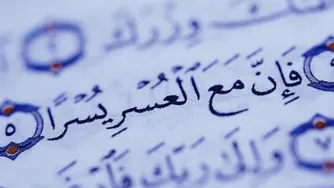 وِزْرَكَ
فَإِنَّ مَعَ ٱلْعُسْرِ يُسْرًا ٥
وَإِلَىٰ رَبِّكَ